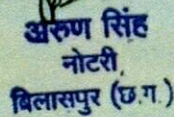 अरुण सिंह
नोटरी,
बिलासपुर (छ.ग.)